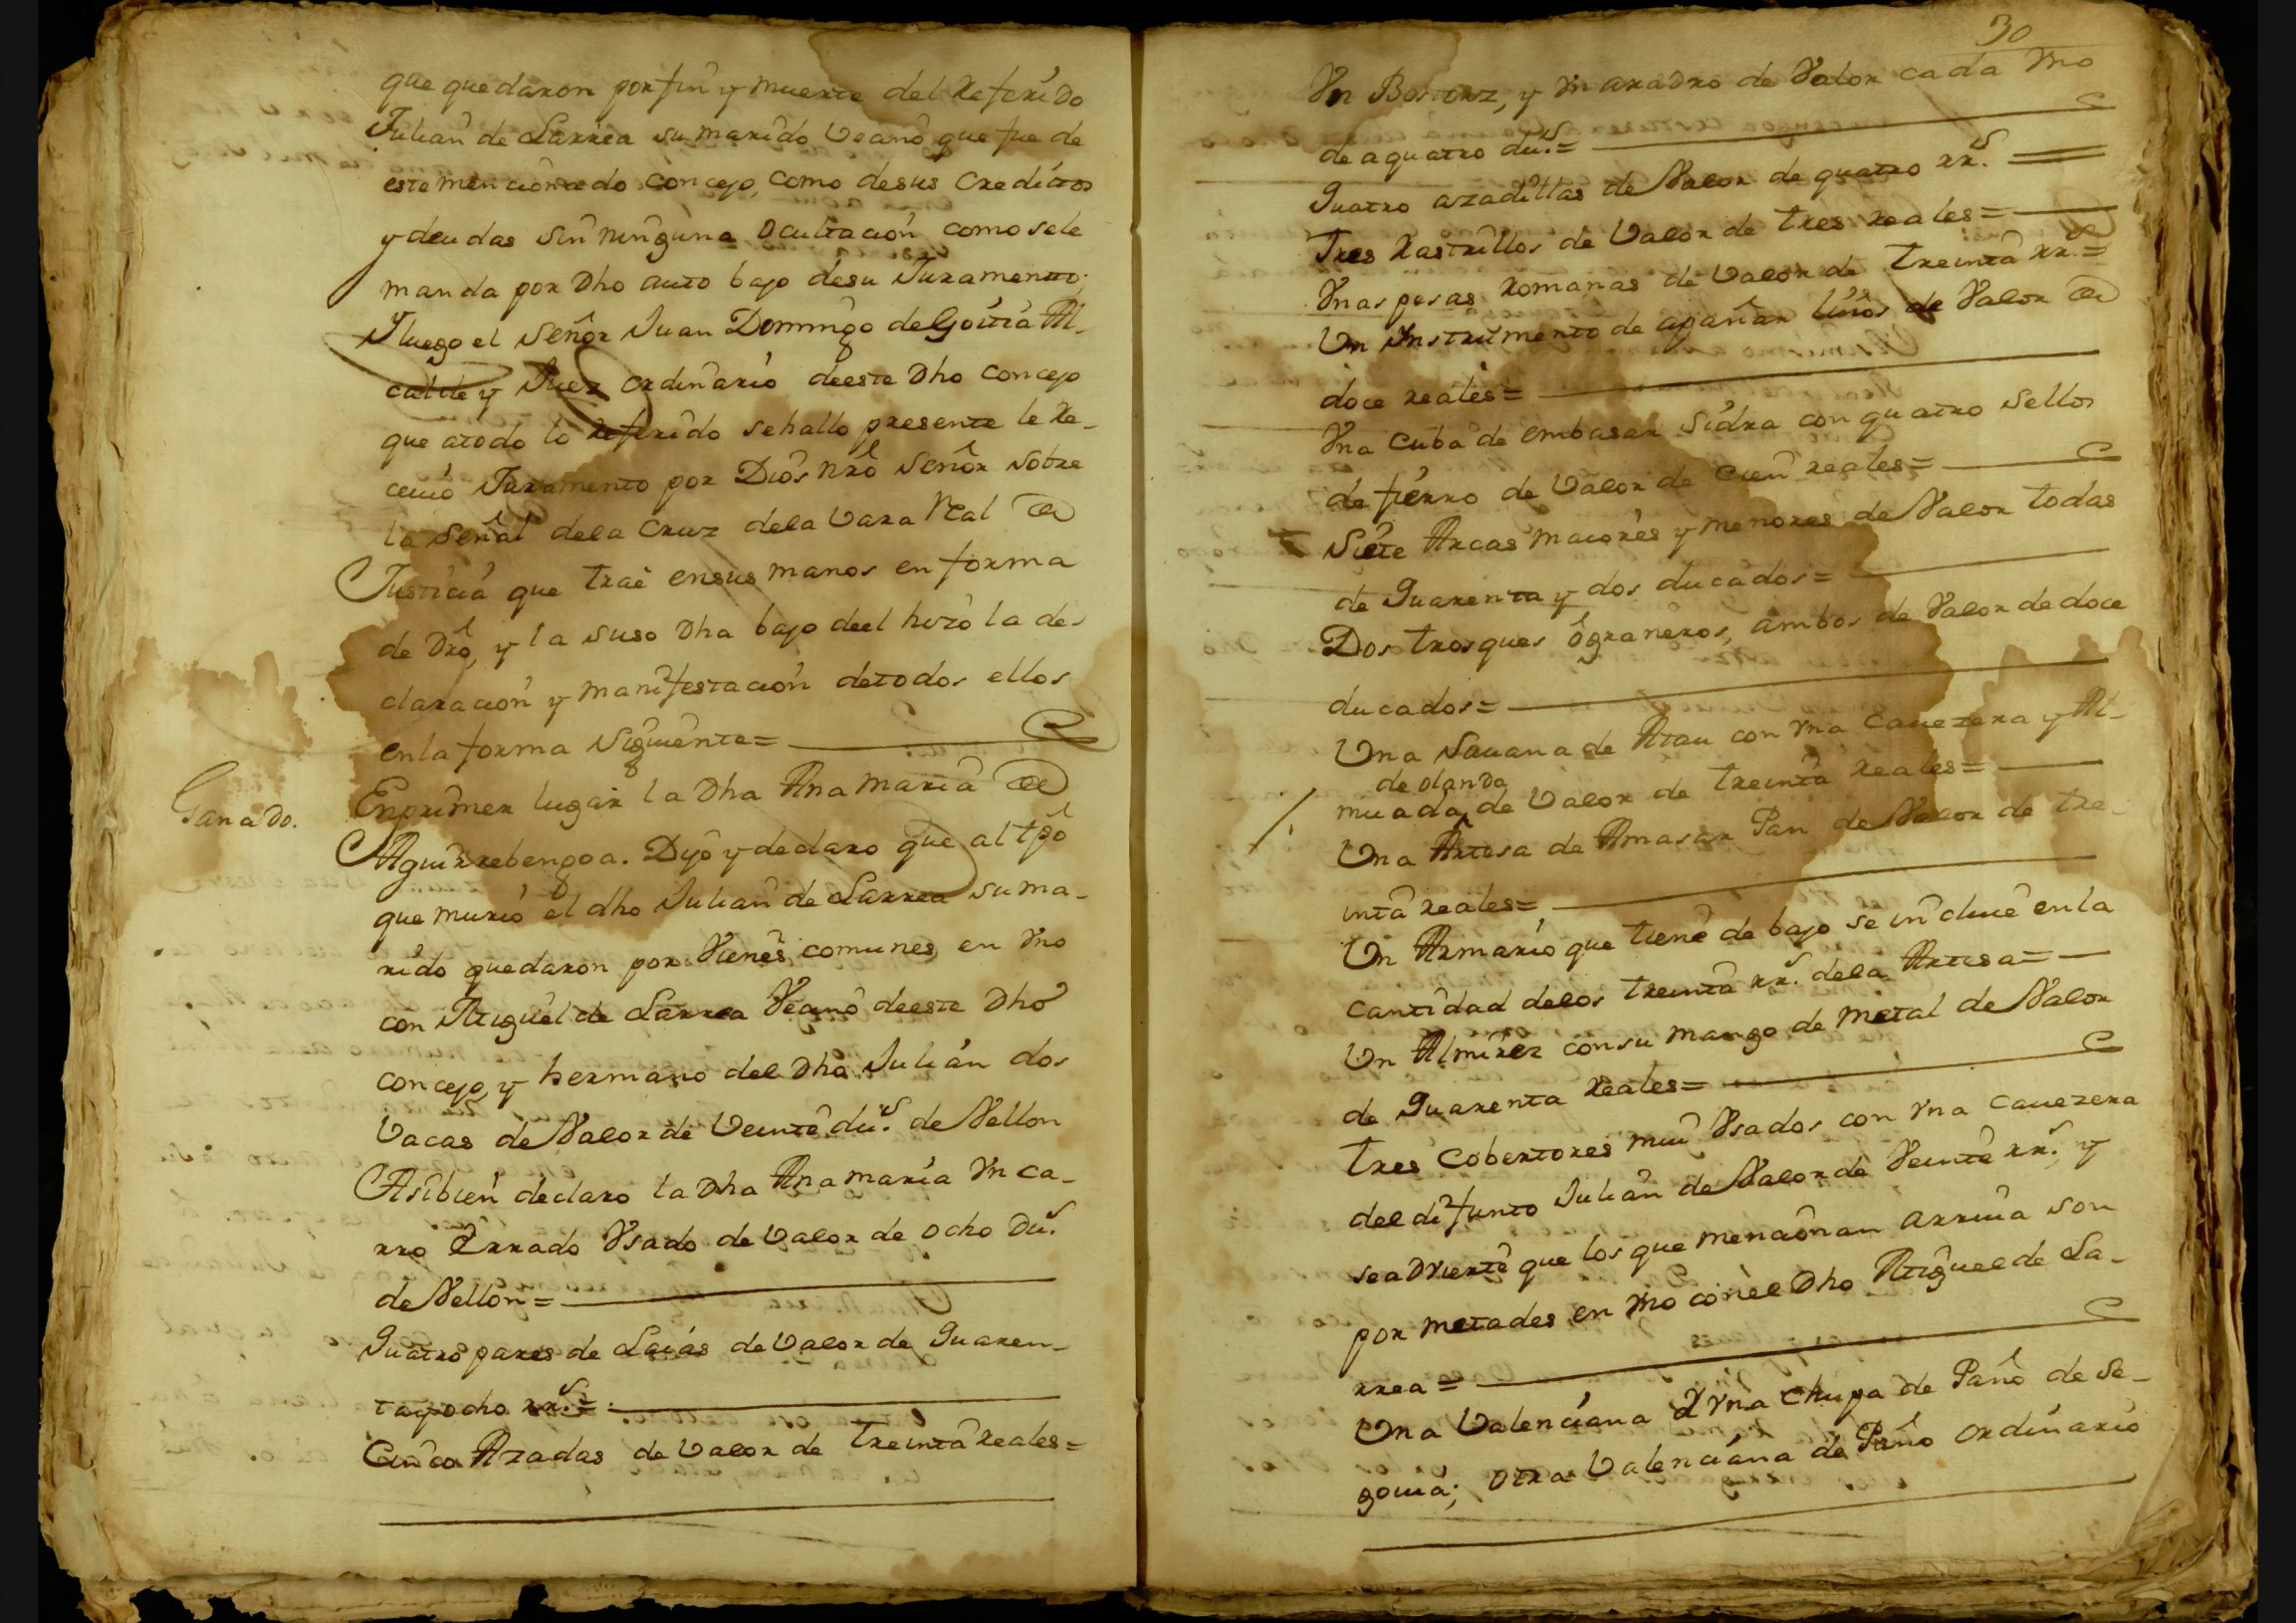 que quedaron por fin y muerte del Referido
Julian de Larrea su marido Veano que fue de
este mencionado concejo, como de sus creditos
y deudas sin ninguna ocultacion como se le
manda por Dho auto bajo de su Juramento;
Y luego el Señor Juan Domingo de Goitia Al-
calde y Juez ordinario de este Dho concejo
que a todo lo referido se hallo presente le Re-
ceuio Juramento por Dios nrô Señor sobre
la Señal de la Cruz de la Vara Real de
Justicia que trae en sus manos en forma
de Drô, y la suso Dha bajo de el hizo la de-
claracion y manifestacion de todos ellos
en la forma Siguiente=
Ganado.
En primer lugar la Dha Ana Maria de
Aguirrebengoa. Dijo y declaro que al tpô
que murio el dho Julian de Larrea su ma-
rido quedaron por Vienes comunes en Vno
con Miguel de Larrea Veano de este Dho
concejo, y hermano del Dho Julian dos
Vacas de Valor de Veinte du.s de Vellon
Asibien declaro la Dha Ana maria Vn ca-
rro Errado Vsado de Valor de ocho Du.s
de Vellon=
Quatro pares de Laias de Valor de Quaren-
ta y ocho rr.s=
Cinco Azadas de Valor de treinta Reales=
30
Vn Bostortz, y Vn aradro de Valor cada Vno
de a quatro du.s=
Quatro azadillas de Valor de quatro rr.s=
Tres Rastrillos de Valor de tres reales=
Vnas pesas Romanas de Valor de treinta rr.s=
Vn Ynstrumento de apañar linos de Valor de
doce reales=
Vna cuba de embasar Sidra con quatro sellos
de fierro de Valor de cien reales=
Siete Arcas maiores y menores de Valor todas
de Quarenta y dos ducados=
Dos trosques ô graneros, ambos de Valor de doce
ducados=
Vna Sauana de Atau con Vna Cauezera y Al-
de olanda
muada, de Valor de treinta Reales=
Vna Artesa de Amasar Pan de Valor de tre-
inta reales=
Vn Armario que tiene de bajo se incluie en la
cantidad de los treinta rr.s de la Artesa=
Vn Almirez con su mango de metal de Valor
de Quarenta Reales=
tres Cobertores mui Vsados con Vna Cauezera
del difunto Julian de Valor de Veinte rr.s, y
se advierte que los que mencionan arriua son
por metades en Vno con el Dho Miguel de La-
rrea=
Vna Valenciana Y Vna Chupa de Paño de Se-
gouia; otra Valenciana de Paño ordinario